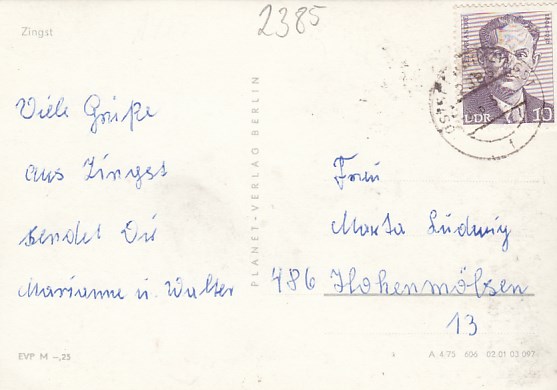 2385
Zingst
Viele Grüße
aus Zingst
sendet Dir
Marianne u. Walter
PLANET-VERLAG BERLIN
DDR 10
Frau
Marta Ludwig
486 Hohenmölsen
13
EVP M -,25
A 4/75 606 02 01 03 097